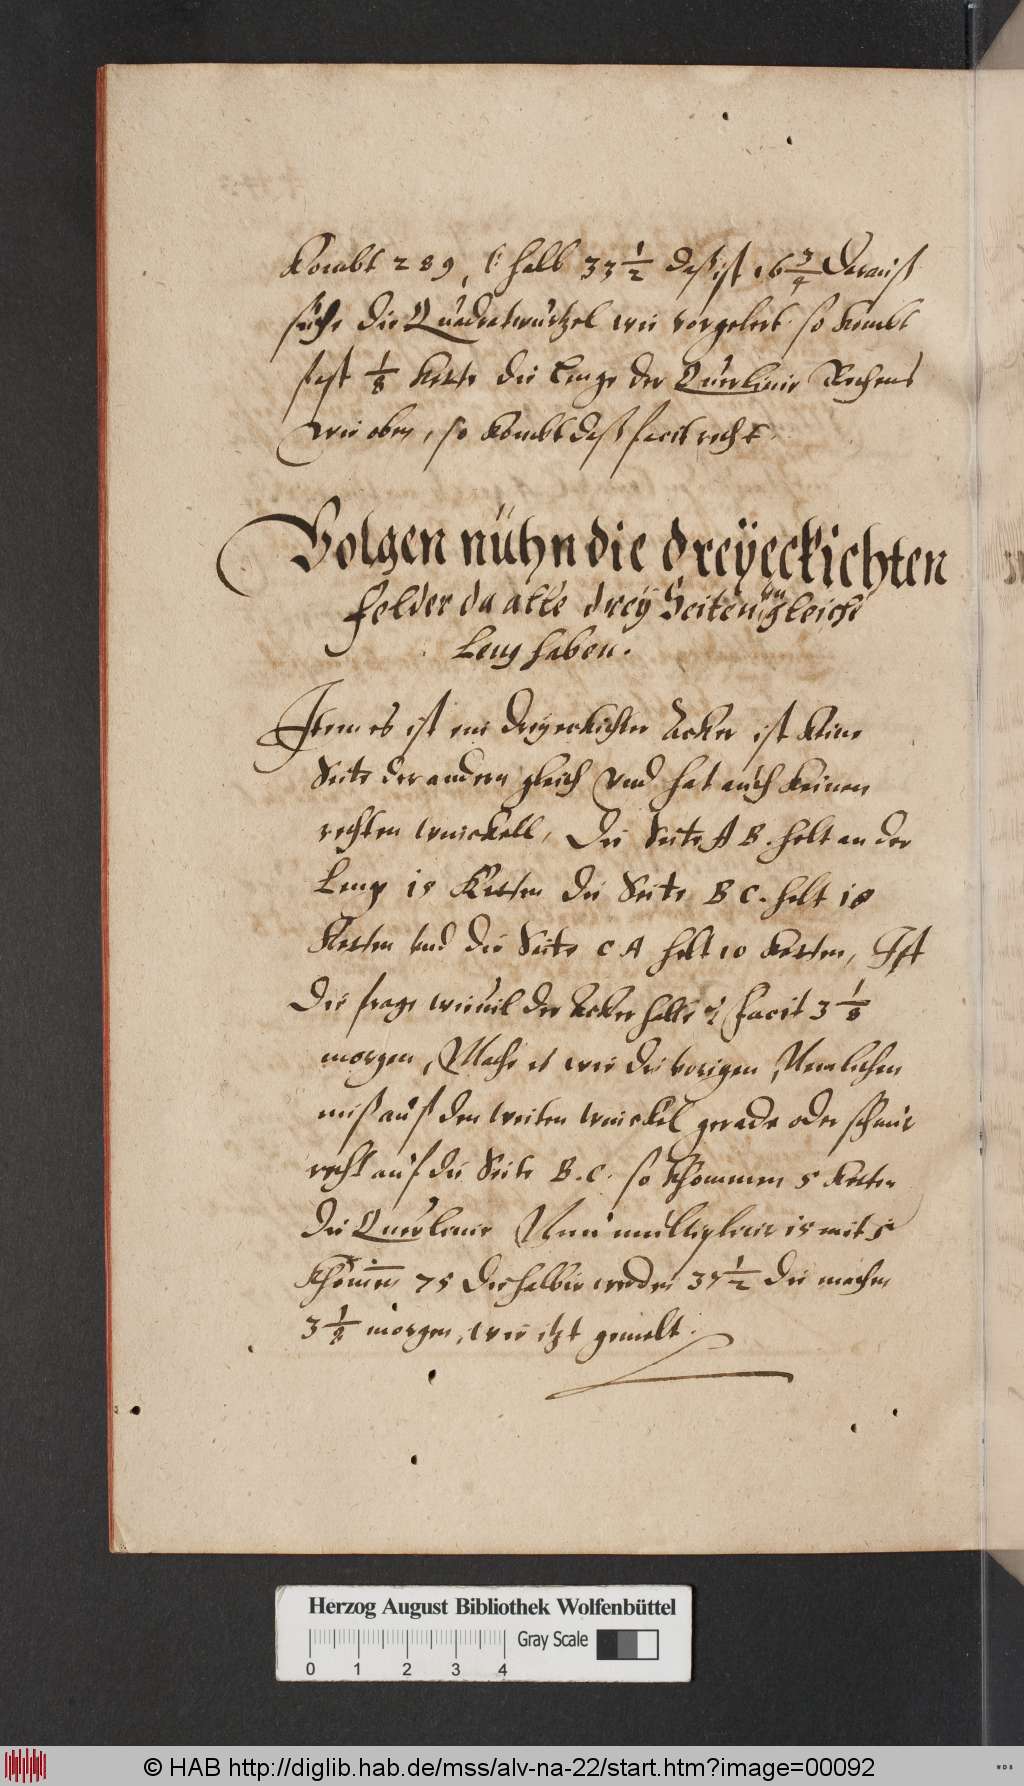 Kombt 289, |: halb 33 1/2 daß ist 16 3/4 Darauß
suche die Quadratwurtzel wie vorgelert so kombt
fast 1/8 kette die lenge der Querlinie Rechens
wie oben, so kombt daß facit recht.
Volgen nühn die dreÿeckichten
felder da alle dreÿ Seiten un gleiche
Leng haben.
Item es ist ein dreÿeckichter Acker ist keine
Seite der andern gleich Vnd hat auch keinen
rechten winckell, Die Seite A B. helt an der
Leng 15 Ketten die Seite B C. helt 18
Ketten vnd die Seite C A helt 10 Ketten, Ist
die frage wieuil der Acker halte facit 3 1/8
morgen, Mache es wie die vorigen, Nemlichen
miß auß den weiten winckel gerade oder schnur
recht auf die Seite B. C. so khommen 5 ketten
die Querlinie Nun multiplicir 15 mit 5
khomen 75 die halbir werden 37 1/2 die machen
3 1/8 morgen, wie itzt gemelt.
Herzog August Bibliothek Wolfenbüttel
Gray Scale
0 1 2 3 4
© HAB http://diglib.hab.de/mss/alv-na-22/start.htm?image=00092